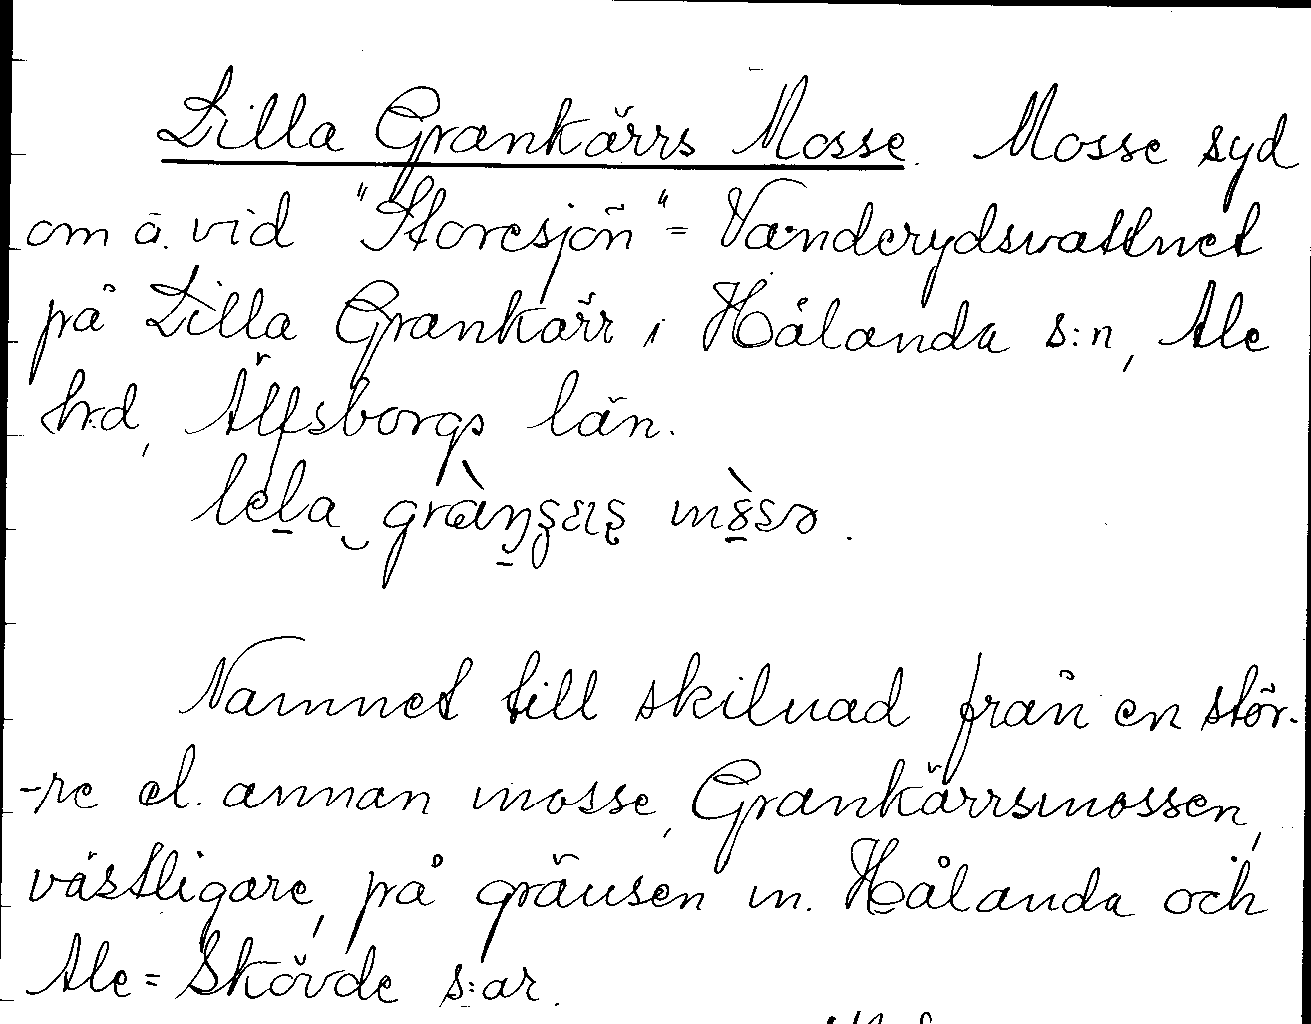 Lilla Grankärrs Mosse. Mosse syd
om o. vid "Storesjön" = Vanderydsvattnet
på Lilla Grankärr i Hålanda s:n, Ale
hd, Älfsborgs län.

Namnet till skilnad från en stör-
-re el. annan mosse, Grankärrsmossen,
västligare, på gränsen m. Hålanda och
Ale=Skövde s:ar.